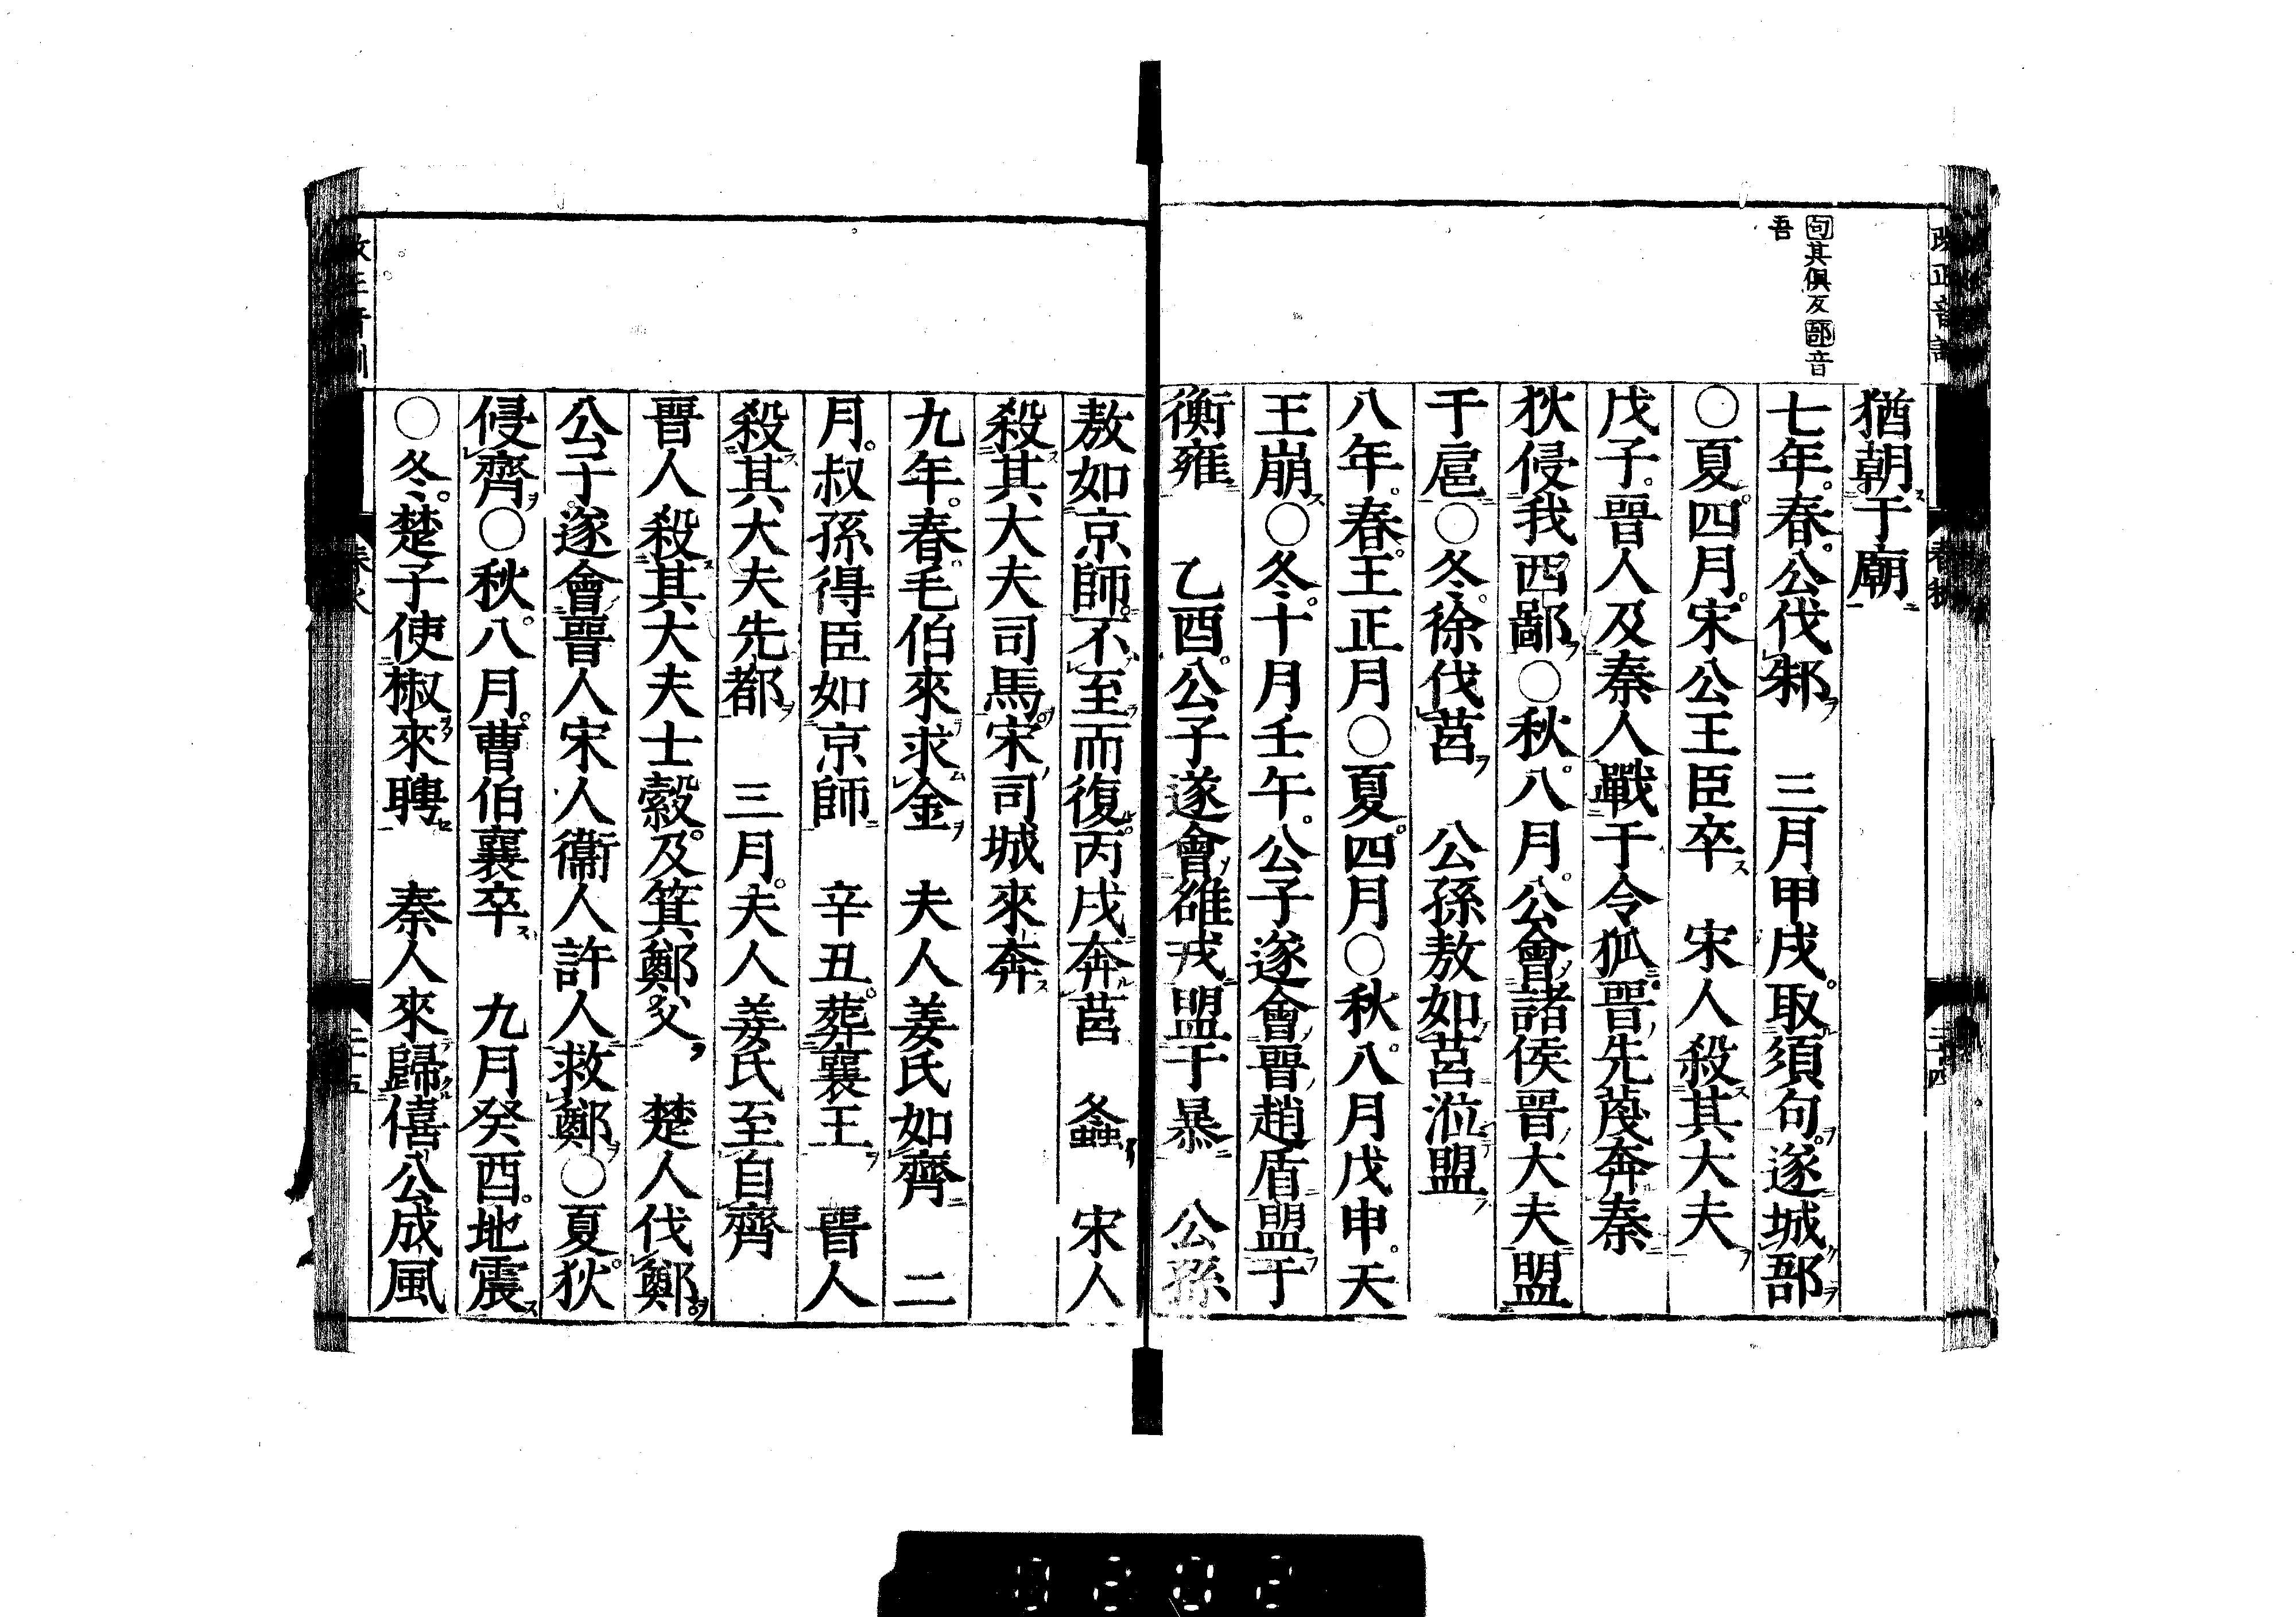 句其俱反郚音
吾
猶朝于廟
七年。春。公伐邾 三月甲戌。取須句。遂城郚
○夏。四月。宋公王臣卒 宋人殺其大夫
戊子。晉人及秦人戰于令狐。晉先蔑奔秦
狄侵我西鄙○秋。八月。公會諸侯晉大夫盟
于扈○冬。徐伐莒 公孫敖如莒涖盟
八年。春。王正月○夏。四月○秋。八月戊申。天
王崩○冬。十月壬午。公子遂會晉趙盾盟于
衡雍 乙酉。公子遂會雒戎盟于暴 公孫
敖如京師。不至而復。丙戌奔莒 螽 宋人
殺其大夫司馬。宋司城來奔
九年。春。毛伯來求金 夫人姜氏如齊 二
月。叔孫得臣如京師 辛丑。葬襄王 晉人
殺其大夫先都 三月。夫人姜氏至自齊
晉人殺其大夫士縠。及箕鄭父 楚人伐鄭。
公子遂會晉人宋人衞人許人救鄭○夏。狄
侵齊○秋。八月。曹伯襄卒 九月癸酉。地震
○冬。楚子使椒來聘 秦人來歸僖公成風
春秋
二十五